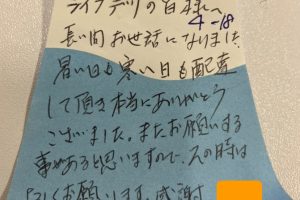 ライフデリの皆様へ
4-18
長い間お世話になりました
暑い日も寒い日も配達
して頂き本当にありがとう
ございました。またお願いする
事があると思いますので、その時は
よろしくお願います。感謝